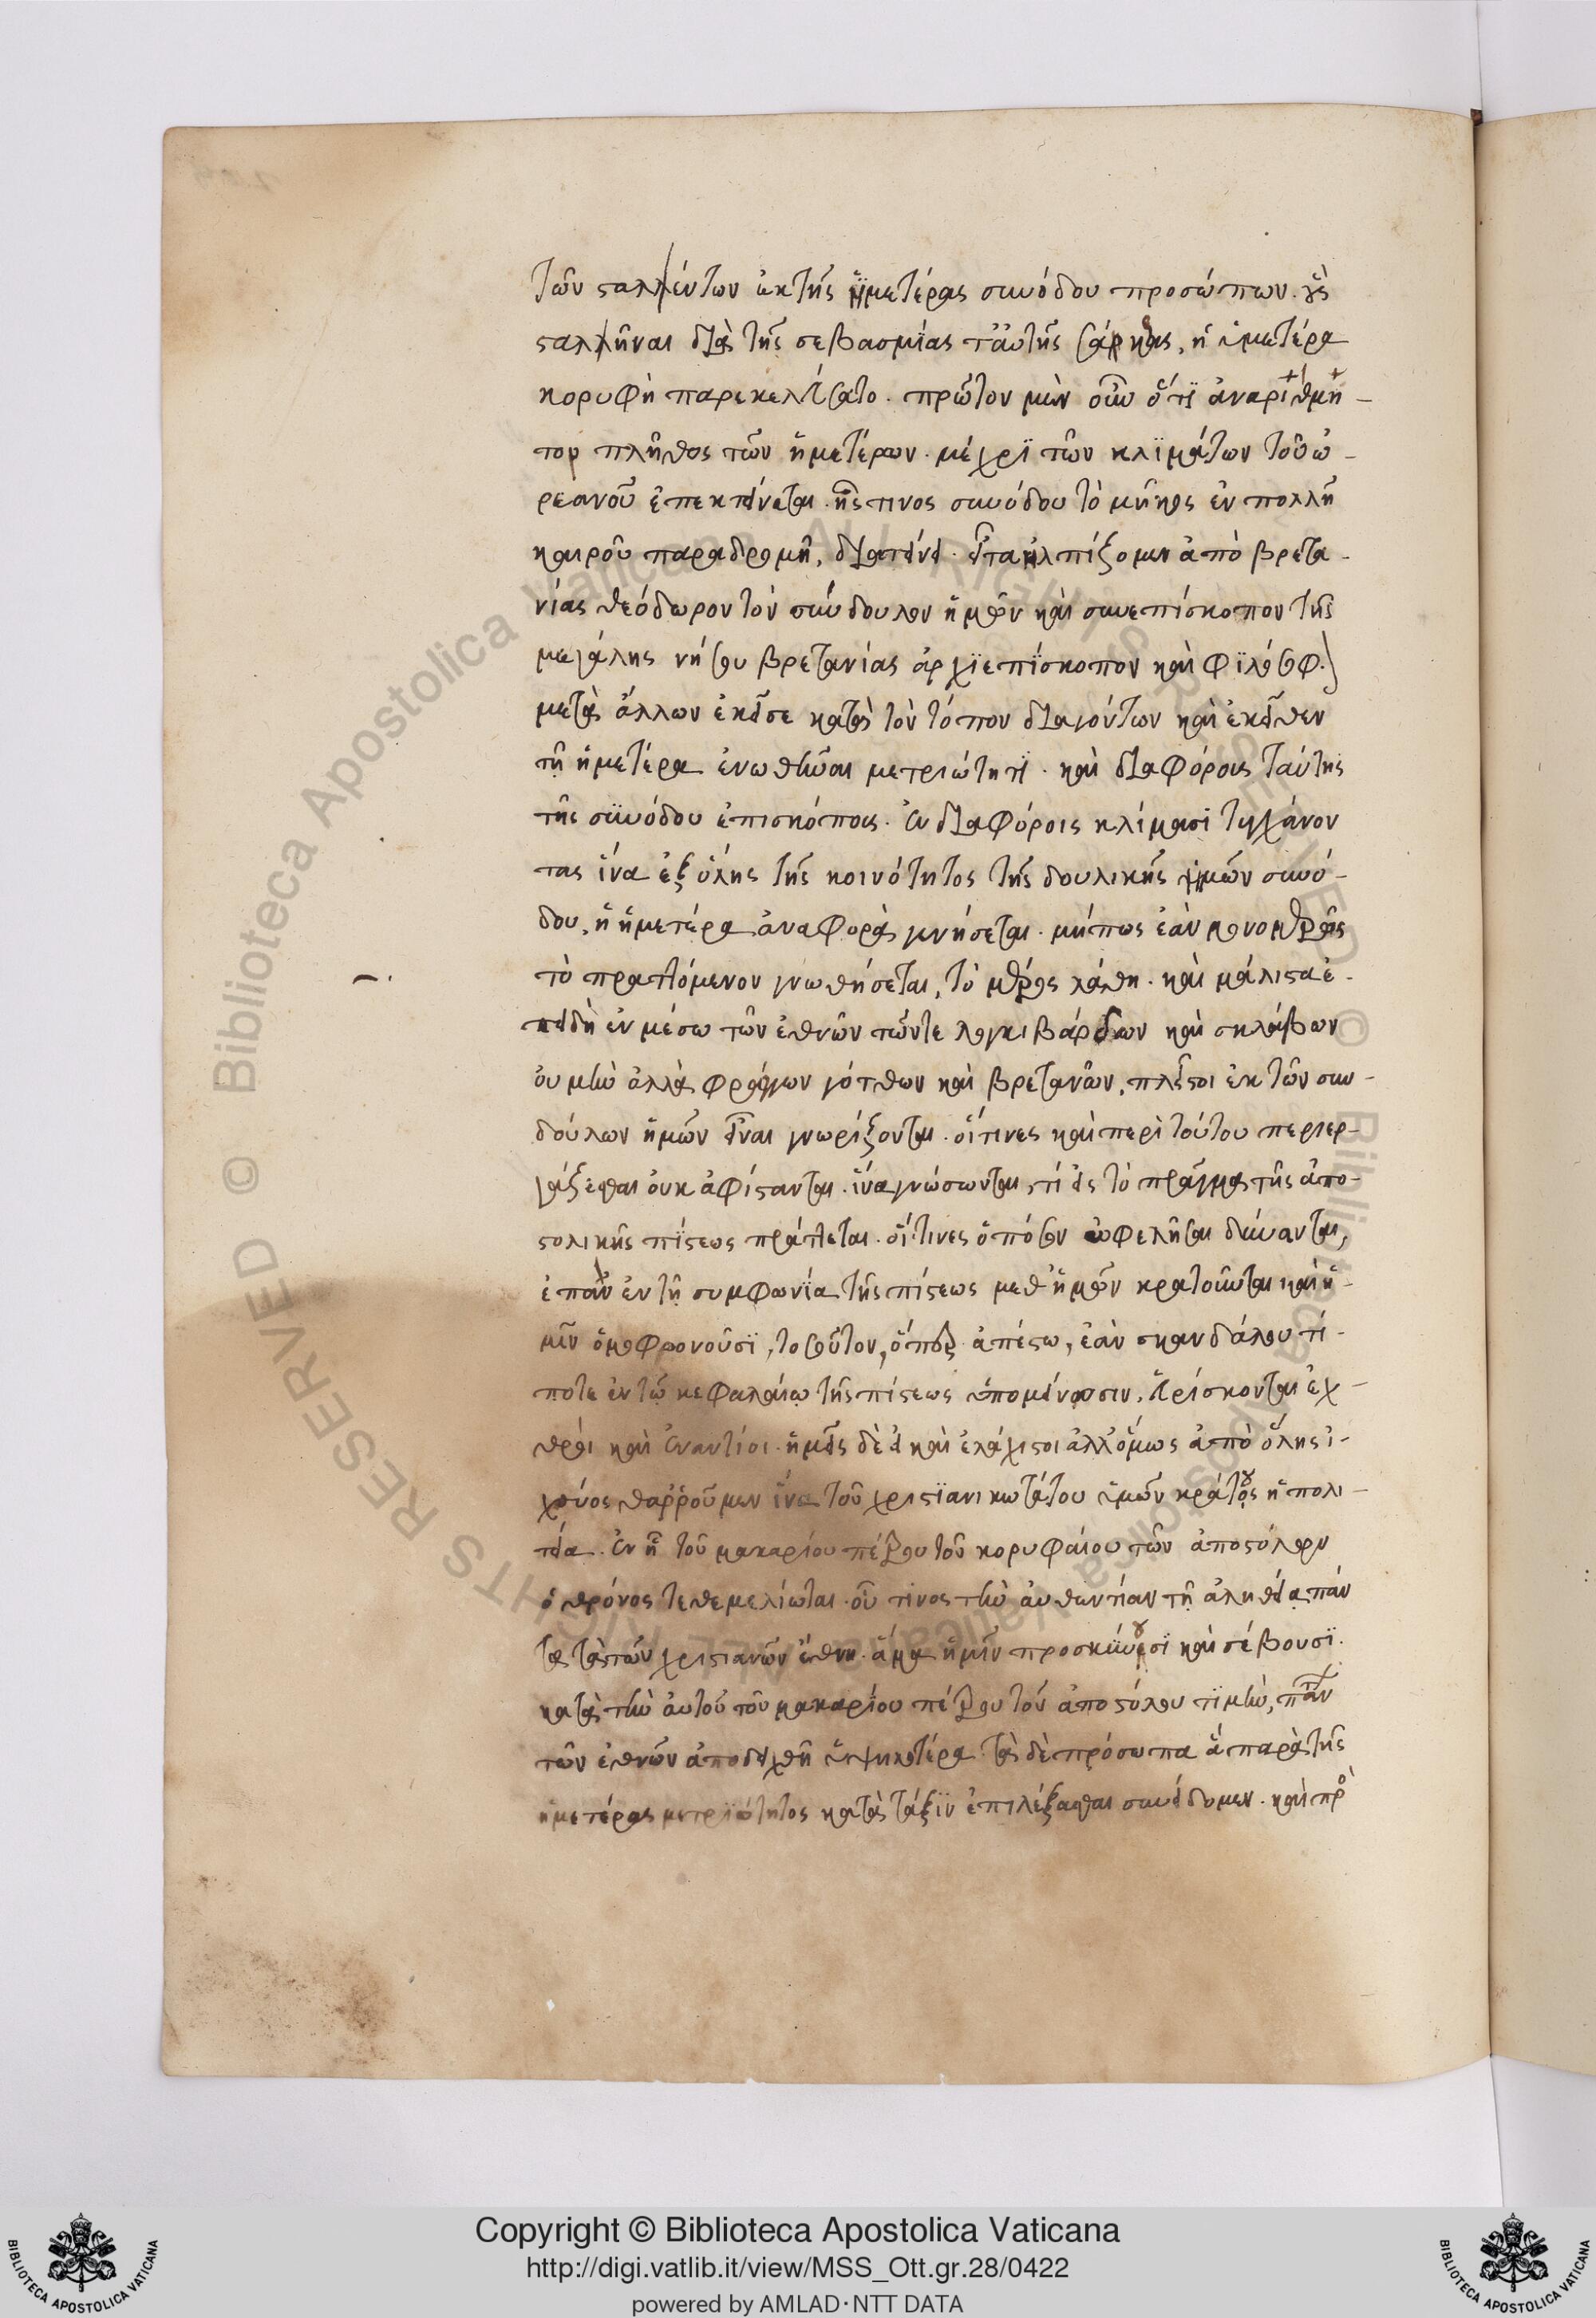 τῶν σταλλέντων ἐκ τῆς ἡμετέρας συνόδου προσώπων. οὓς
σταλλῆναι διὰ τῆς σεβασμίας ταύτης σάκρας, ἡ ὑμετέρα
κορυφὴ παρεκελεύσατο. πρῶτον μὲν οὖν ὅτι ἀναρίθμη-
τον πλῆθος τῶν ἡμετέρων. μέχρι τῶν κλϊμάτων τοῦ ὠ-
κεανοῦ ἐπεκτείνεται. ἧς τινος συνόδου τὸ μῆκος ἐν πολλῆ
καιροῦ παραδρομῆ, διατείνει. εἶτα ἠλπίζομεν ἀπὸ βρετα-
νίας θεόδωρον τὸν σύνδουλον ἡμῶν καὶ συνεπίσκοπον τῆς
μεγάλης νήσου βρετανίας ἀρχϊεπίσκοπον καὶ φϊλόσοφ.
μετὰ ἄλλων ἐκεῖσε κατὰ τὸν τόπον διαγόντων καὶ ἐκεῖθεν
τῇ ἡμετέρα ἑνωθῆναι μετριότητϊ. καὶ διαφόροις ταύτης
τῆς συνόδου ἐπισκόποις. ἐν διαφόροις κλίμασϊ τυγχάνον
τας ἵνα ἐξ ὅλης τῆς κοινότητος τῆς δουλικῆς ἡμῶν συνό-
δου, ἡ ἡμετέρα ἀναφορὰ γενήσεται. μήπως ἐὰν μονομερῶς
τὸ πραττόμενον γνωθήσεται, τὸ μέρος λάθη. καὶ μάλιστα ἐ-
πειδὴ ἐν μέσω τῶν ἐθνῶν τῶν τε λογκιβάρδων καὶ σκλάβων
οὐ μὴν ἀλλὰ φράγγων γότθων καὶ βρετανῶν, πλεῖστοι ἐκ τῶν συν-
δούλων ἡμῶν εἶναι γνωρίζονται. οἵτινες καὶ περὶ τούτου περιερ-
γάζεσθαι οὐκ ἀφίστανται. ἵνα γνώσωνται, τί εἰς τὸ πρᾶγμα τῆς ἀπο-
στολικῆς πίστεως πράττεται. οἵτινες ὁπόσον ὠφελῆσαι δύνανται,
ἐπὰν ἐν τῇ συμφωνία τῆς πίστεως μεθ' ἡμῶν κρατοῦνται καὶ ἡ-
μῖν ὁμοφρονοῦσϊ, τοσοῦτον, ὅπερ ἀπέστω, ἐὰν σκανδάλου τί-
ποτε ἐν τῷ κεφαλαίῳ τῆς πίστεως ὑπομείνωσιν, εὑρίσκονται ἐχ-
θροὶ καὶ ἐναντίοι. ἡμεῖς δὲ εἰ καὶ ἐλάχιστοι ἀλλ' ὅμως ἀπὸ ὅλης ἰ-
χύος θαρροῦμεν ἵνα τοῦ χριστϊανικωτάτου ὑμῶν κράτους ἡ πολι-
τεία. ἐν ᾗ τοῦ μακαρίου πέτρου τοῦ κορυφαίου τῶν ἀποστόλων
ὁ θρόνος τεθεμελίωται. οὗ τινος τὴν αὐθεντίαν τῇ ἀληθείᾳ πάν
τα τὰ τῶν χριστιανῶν ἔθνη. ἅμα ἡμῖν προσκυνοῦσϊ καὶ σέβουσϊ.
κατὰ τὴν αὐτοῦ τοῦ μακαρίου πέτρου τοῦ ἀποστόλου τϊμὴν, πάντων
τῶν ἐθνῶν ἀποδειχθῆ ὑψηλοτέρα. τὰ δὲ πρόσωπα ἃ παρὰ τῆς
ἡμετέρας μετριότητος κατὰ τάξϊν ἐπιλέξασθαι συνείδομεν. καὶ πρὸ
Copyright © Biblioteca Apostolica Vaticana
http://digi.vatlib.it/view/MSS_Ott.gr.28/0422
powered by AMLAD·NTT DATA